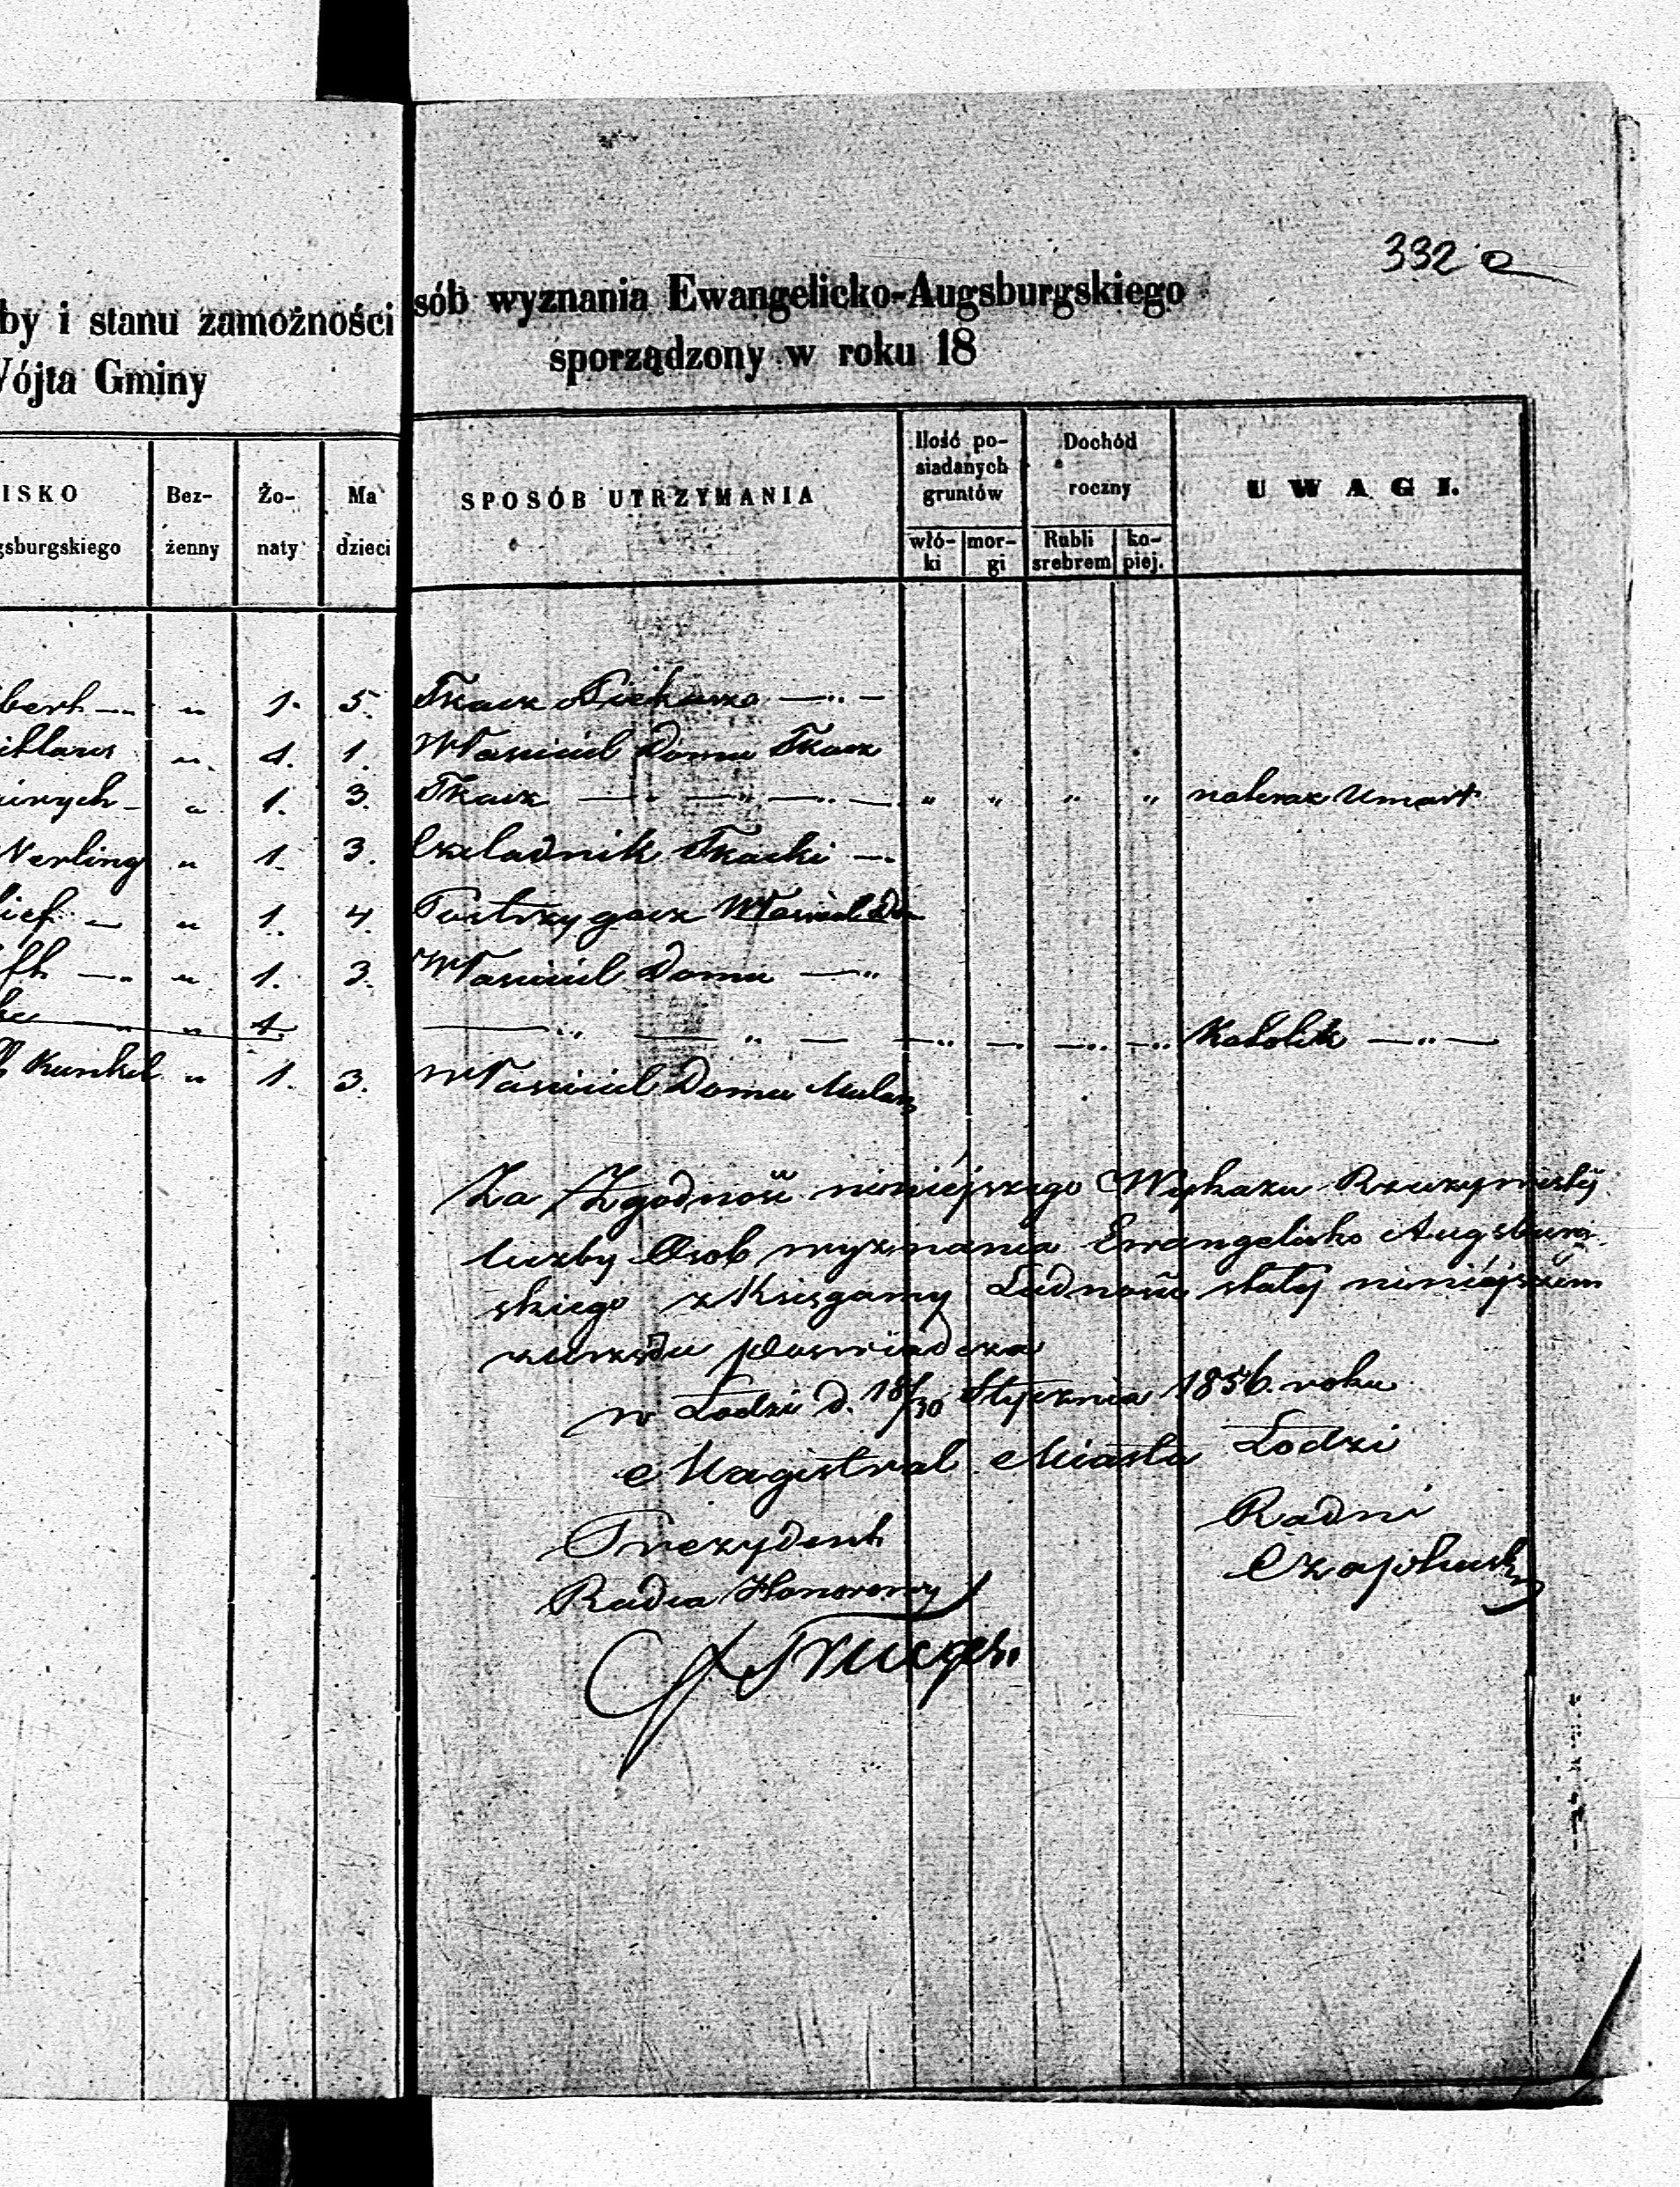 332
by i stanu zamożności sób wyznania Ewangelicko-Augsburgskiego
Wójta Gminy sporządzony w roku 18
ISKO
gsburgskiego
Bez-
żenny
Żo-
naty
Ma
dzieci
SPOSÓB UTRZYMANIA
Ilość po-
siadanych
gruntów
włó-
ki
mor-
gi
Dochód
roczny
Rubli
srebrem
ko-
piej.
UWAGI.
bert — „ 1. 5. Tkacz Piekarz — „ —
„ 1. 1. Właściciel Domu Tkacz
„ 1. 3. Tkacz — „ — „ — „ — „ „ „ „ Umarł
Nerling „ 1. 3. Czeladnik Tkacki —
ief — „ 1. 4. Postrzygacz Właściciel Do
„ 1. 3. Właściciel Domu — „
„ 1. — „ — „ — „ — „ — Katolik — „ —
Kunkel „ 1. 3. Właściciel Domu Mularz
Za Zgodność niniejszego Wykazu Rzeczywistéj
liczby Osob wyznania Ewangelicko Augsburg-
skiego z Ksiegamy Ludność stałej niniéjszém
z urzędu poswiadcza
w Łodzi d. 18/30 Stycznia 1856. roku
Magistrat Miasta Łodzi
Prezydent
Radca Honorowy
Radni
Czajkowski
Traeger